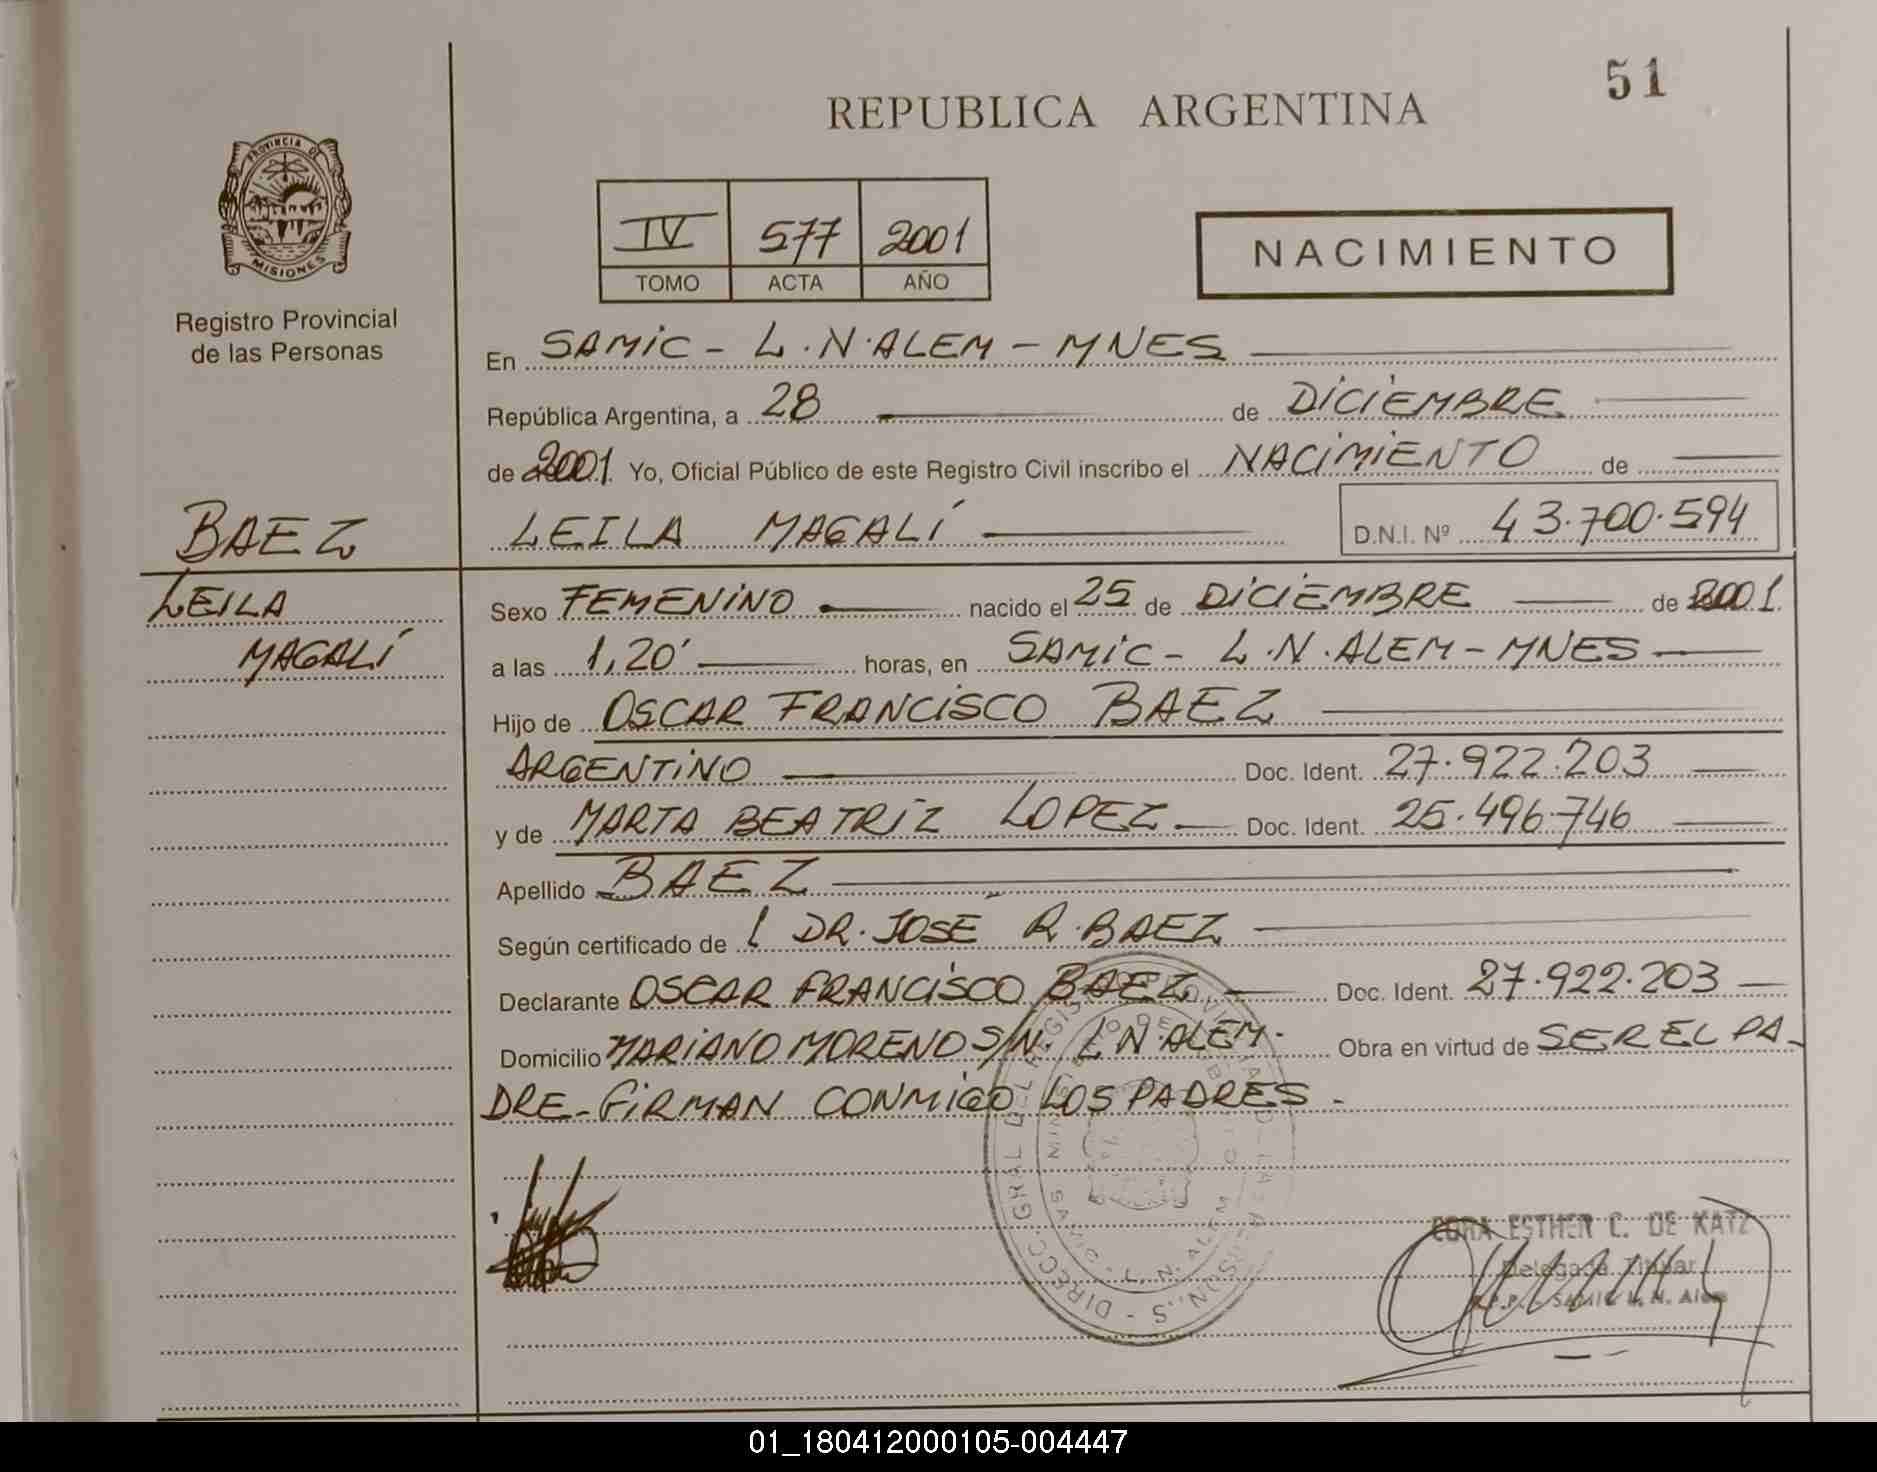 51
REPUBLICA ARGENTINA
PROVINCIA DE
MISIONES
Registro Provincial
de las Personas
IV 577 2001
TOMO ACTA AÑO
NACIMIENTO
En SAMIC - L.N.ALEM - MNES
República Argentina, a 28 de DICIEMBRE
de 2001. Yo, Oficial Público de este Registro Civil inscribo el NACIMIENTO de
BAEZ
LEILA MAGALÍ D.N.I. Nº 43.700.594
LEILA
MAGALÍ
Sexo FEMENINO nacido el 25 de DICIEMBRE de 2001.
a las 1,20' horas, en SAMIC - L.N.ALEM - MNES
Hijo de OSCAR FRANCISCO BAEZ
ARGENTINO Doc. Ident. 27.922.203
y de MARTA BEATRIZ LOPEZ Doc. Ident. 25.496.746
Apellido BAEZ
Según certificado de DR. JOSE R. BAEZ
Declarante OSCAR FRANCISCO BAEZ, Doc. Ident. 27.922.203
Domicilio MARIANO MORENO S/N. L N.ALEM. Obra en virtud de SER EL PA-
DRE - FIRMAN CONMIGO LOS PADRES.
CORA ESTHER C. DE KATZ
Delegada Titular
SAMIC L. N. Alem
01_180412000105-004447